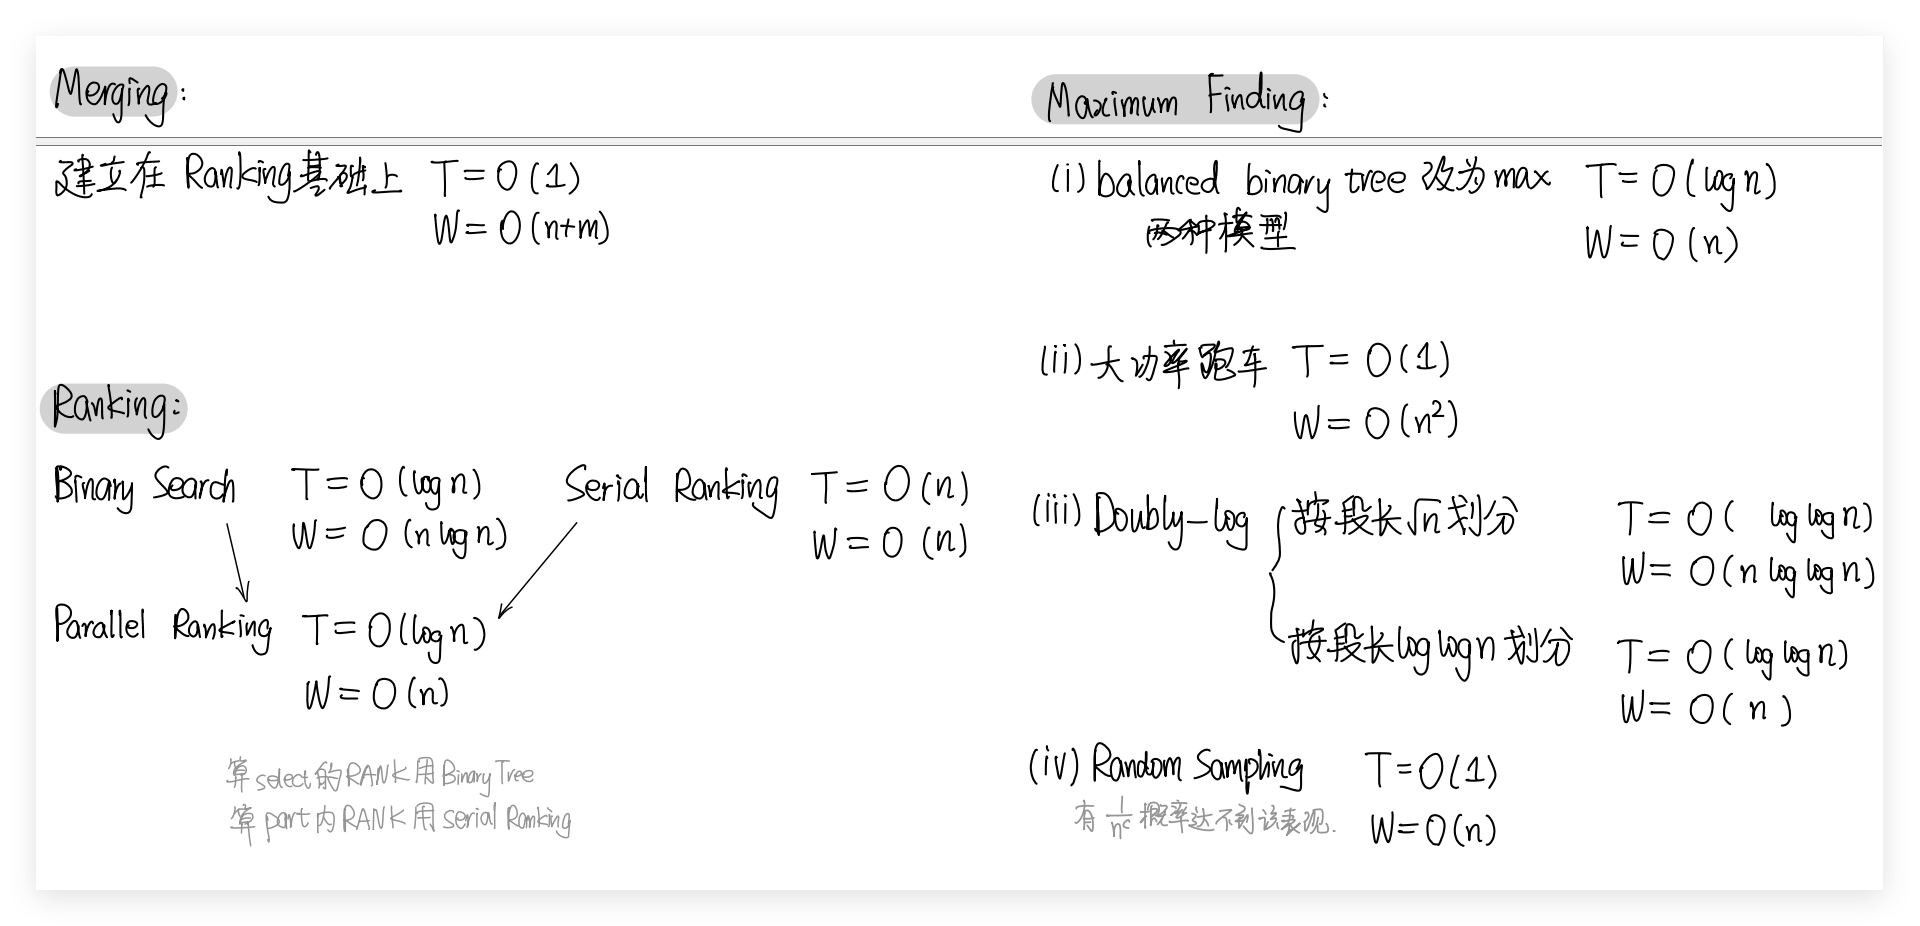 Merging:
建立在 Ranking基础上 T = O(1)
W = O(n+m)
Ranking:
Binary Search T = O(log n)
W = O(n log n)
Serial Ranking T = O(n)
W = O(n)
Parallel Ranking T = O(log n)
W = O(n)
算select的RANK用Binary Tree
算part内RANK用Serial Ranking
Maximum Finding:
(i) balanced binary tree 改为max T = O(log n)
两种模型 W = O(n)
(ii) 大功率跑车 T = O(1)
W = O(n²)
(iii) Doubly-log
按段长√n划分 T = O( log log n)
W = O(n log log n)
按段长log log n划分 T = O(log log n)
W = O( n )
(iv) Random Sampling T = O(1)
有 1/nᶜ 概率达不到该表现. W = O(n)